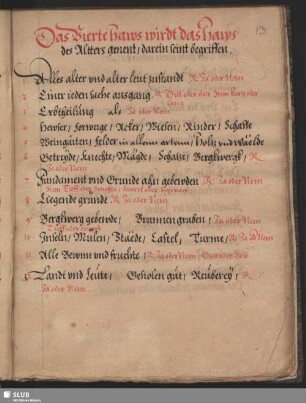 13
Das Vierte haws wirdt das haws
des Alters genent / darein seint begriffen.
1 Alles alter vnd alter leut zustandt R Ja oder Nein
2 Einer ieden sache ausgang R Gut oder böß Item kurtz oder
lang
3 Erbtheilung als Ja oder Nein
4 Hewser / Forwerge / Acker / Wiesen / Rinder / Schaffe
5 Weingarten / Felder in allerm artem / Holtz vnd Wälde
6 Getreyde / Knechte / Mägde / Schätze / Berghwergk / R
Ja oder Nein
7 Fundament vnd Grunde aller gebewden R Ja oder Nein
8 Liegende grunde R Ja oder Nein
9 Berghwerg gebewde / Brunnengraben / Ja oder Nein
10 Inseln / Mulen / Städe / Castel / Turme / R Ja oder Nein
11 Alle Bewme vnd fruchte / R Ja oder Nein / Gut oder Böse
12 Landt vnd leute / Gestolen gut / Rauberey / R
Ja oder Nein
SLUB